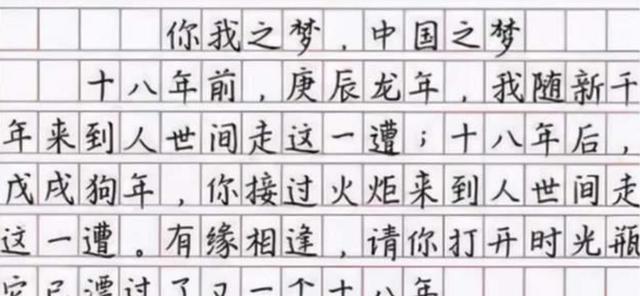 你我之梦，中国之梦
十八年前，庚辰龙年，我随新千
年来到人世间走这一遭；十八年后，
戊戌狗年，你接过火炬来到人世间走
这一遭。有缘相逢，请你打开时光瓶
它已漂过了又一个十八年